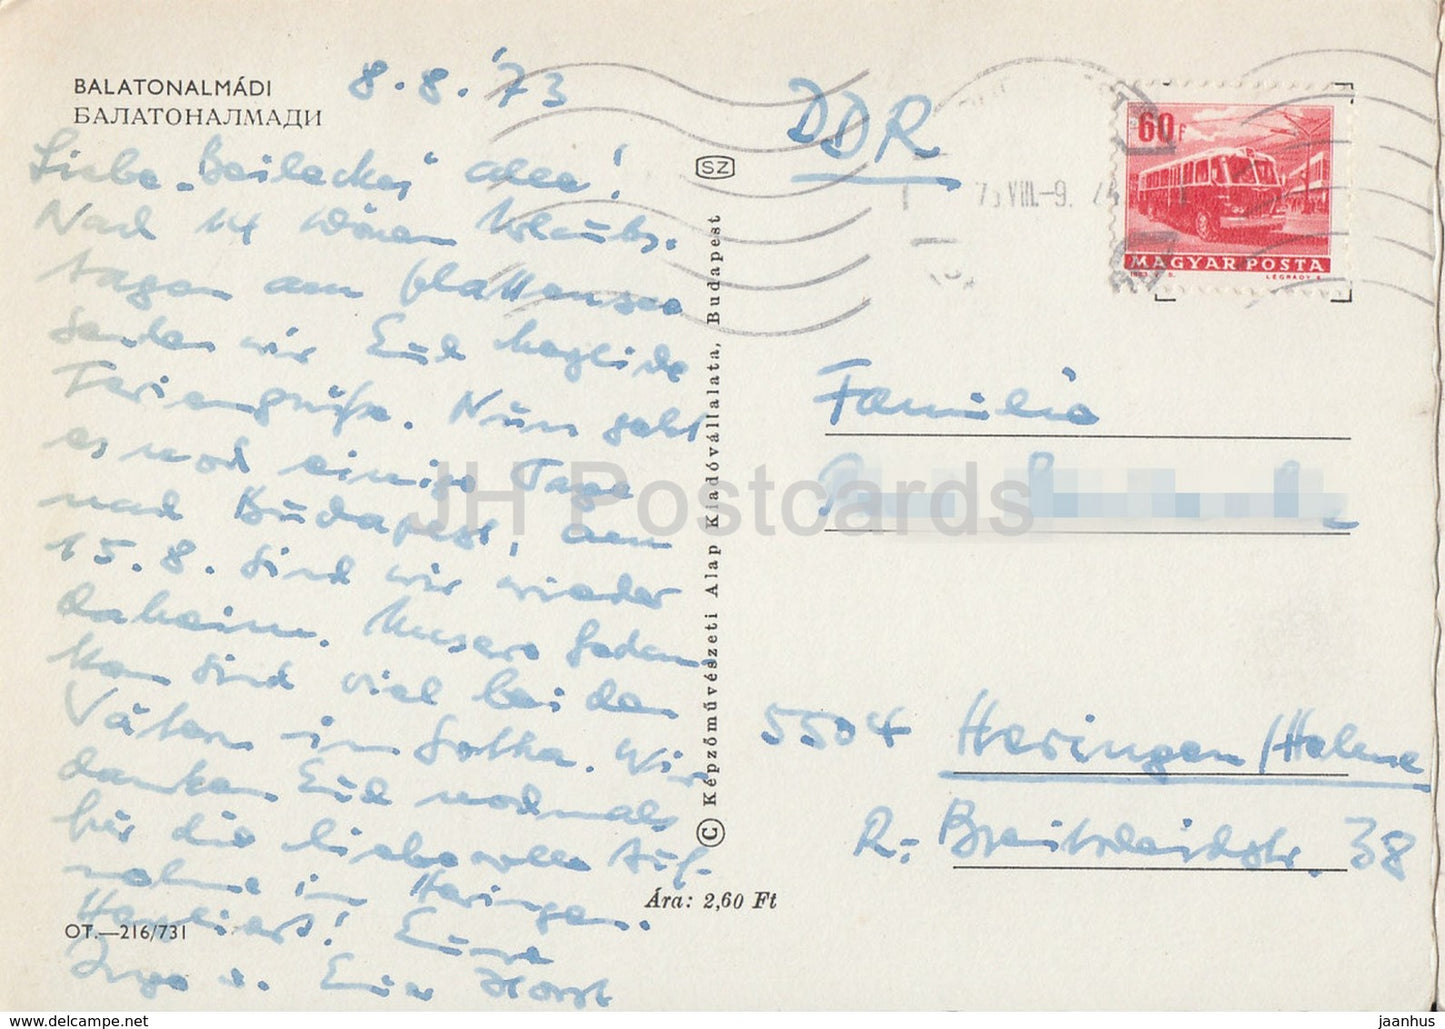 BALATONALMÁDI
БАЛАТОНАЛМАДИ
8.8.'73
Liebe alle!
Nach 14 Urlaubs-
tagen am Plattensee
senden wir Euch herzliche
Feriengrüße. Nun geht
es noch einige Tage
nach Budapest, am
15.8. sind wir wieder
daheim. Unsere Gedan-
ken sind viel bei den
Vätern in Gotha. Wir
danken Euch nochmals
für die liebevolle Auf-
nahme in Heringen.
Herzlichst! Eure
Inge u. Euer Horst
OT.—216/731
SZ
© Képzőművészeti Alap Kiadóvállalata, Budapest
Ára: 2,60 Ft
DDR
VIII.-9.
60F
MAGYAR POSTA
LÉGRÁDY S.
Familie
5504 Heringen/Helme
R.- Breitscheidstr. 38
JH Postcards
www.delcampe.net
jaanhus